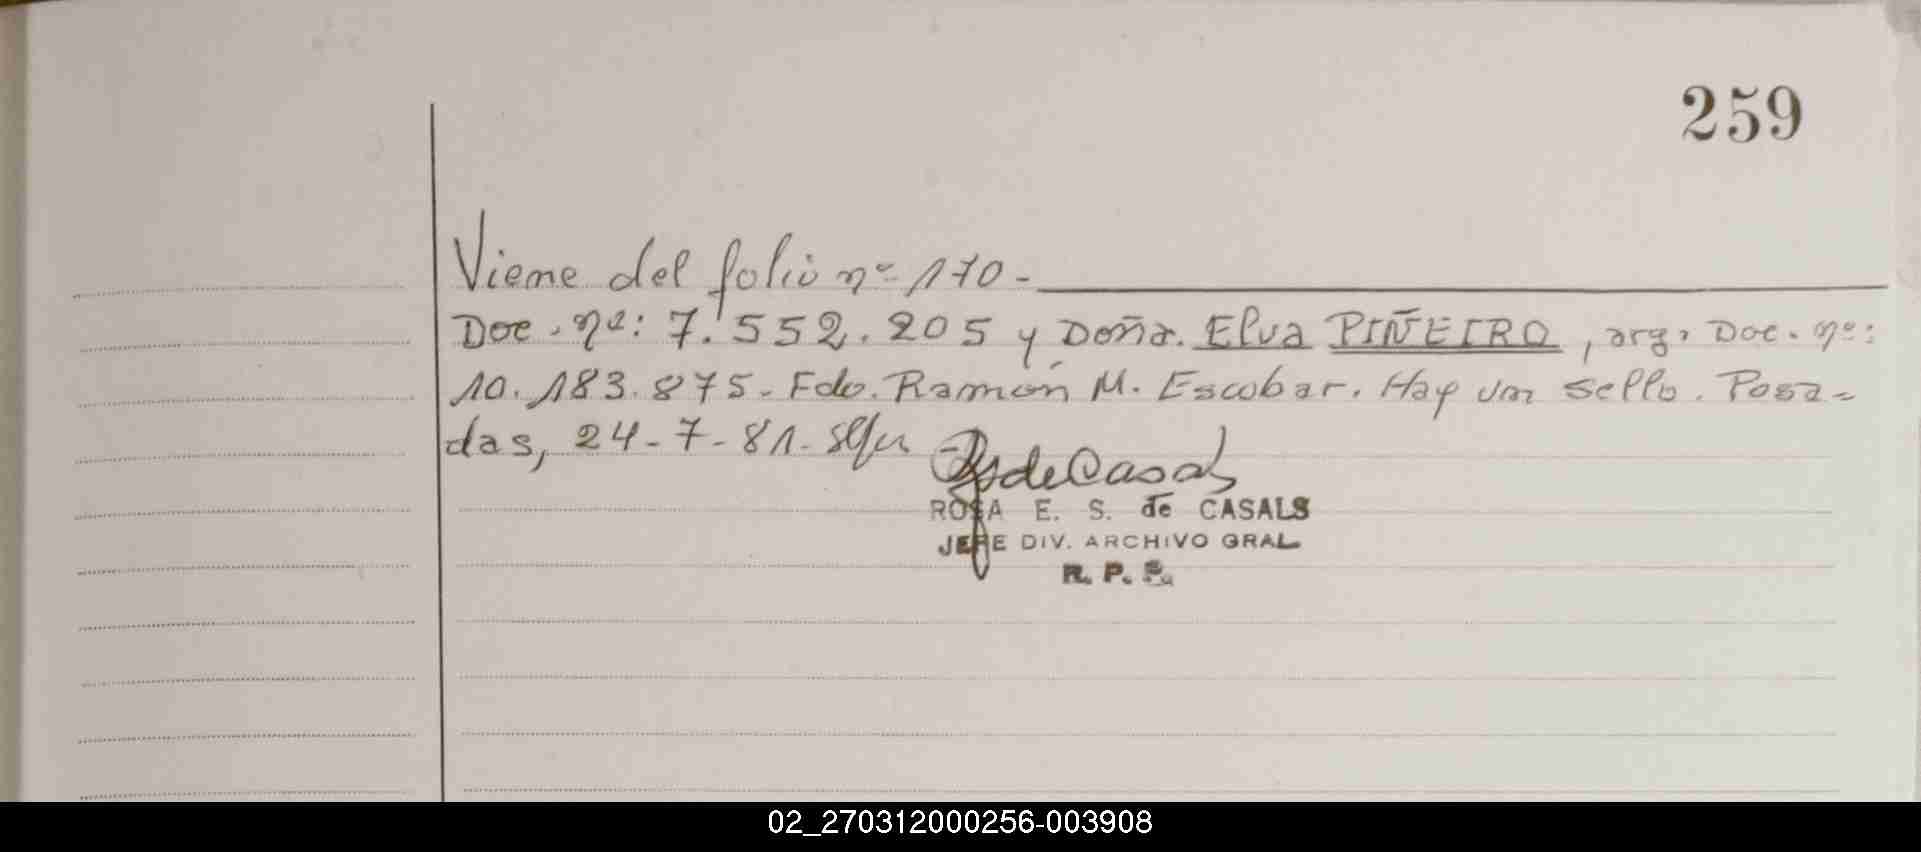 259
Viene del folio nº 170-
Doc. nº: 7.552.205 y Doña. Elva PIÑEIRO, arg. Doc. nº:
10.183.875. Fdo. Ramón M. Escobar. Hay un sello. Posa-
das, 24-7-81.
de Casals
ROSA E. S. de CASALS
JEFE DIV. ARCHIVO GRAL
R. P. P.
02_270312000256-003908